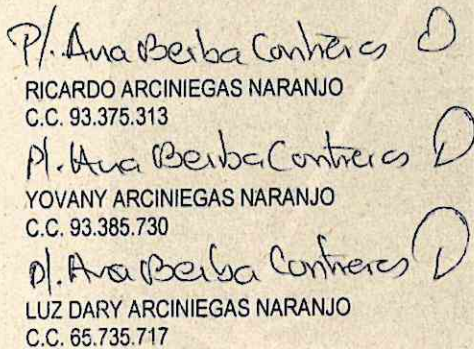 P/. Ana Berba Contreras
RICARDO ARCINIEGAS NARANJO
C.C. 93.375.313
P/. Ana Berba Contreras
YOVANY ARCINIEGAS NARANJO
C.C. 93.385.730
P/. Ana Berba Contreras
LUZ DARY ARCINIEGAS NARANJO
C.C. 65.735.717